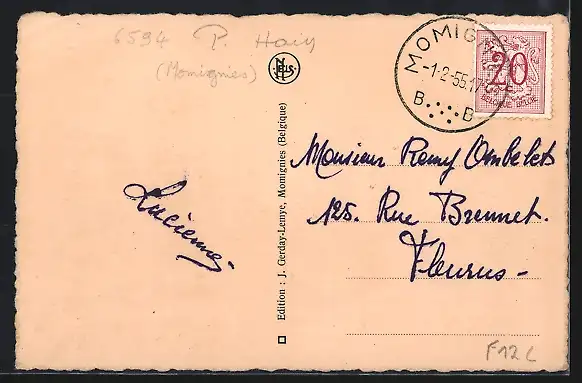 6594 P. Haiy
(Momignies)
NELS
MOMIGN
-1-2-55.17
B B
20
BELGIQUE BELGIE
Monsieur Remy Ombelets
125. Rue Brennet.
Fleurus-
Lucienne-
Edition : J. Gerday-Lemye, Momignies (Belgique)
F12C